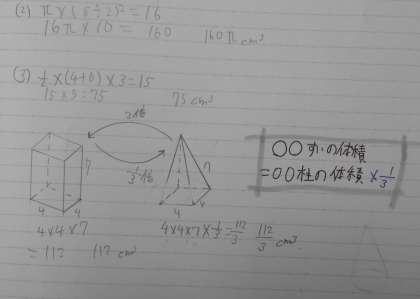 (2) π×(8÷2)²=16
16π×10=160 160π cm³
(3) ½×(4+6)×3=15
15×5=75 75cm³
3倍
⅓倍
7
4
4
7
4
4
4×4×7
=112 112cm³
4×4×7×⅓=112/3 112/3 cm³
○○すいの体積
=○○柱の体積×⅓